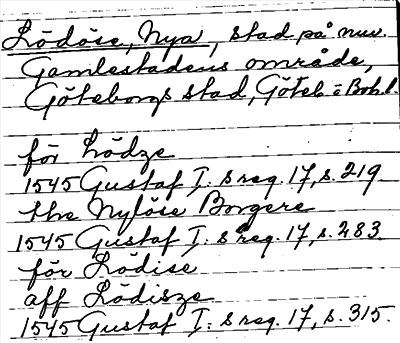 Lödöse, Nya, stad på nuv.
Gamlestadens område,
Göteborgs stad, Göteb. o Boh. l.
för Lödze
1545 Gustaf I: s reg. 17, s. 219
the Nylöse Borgere
1545 Gustaf I: s reg. 17, s. 283.
för Lödise
aff Lödisze
1545 Gustaf I: s reg. 17, s. 315.